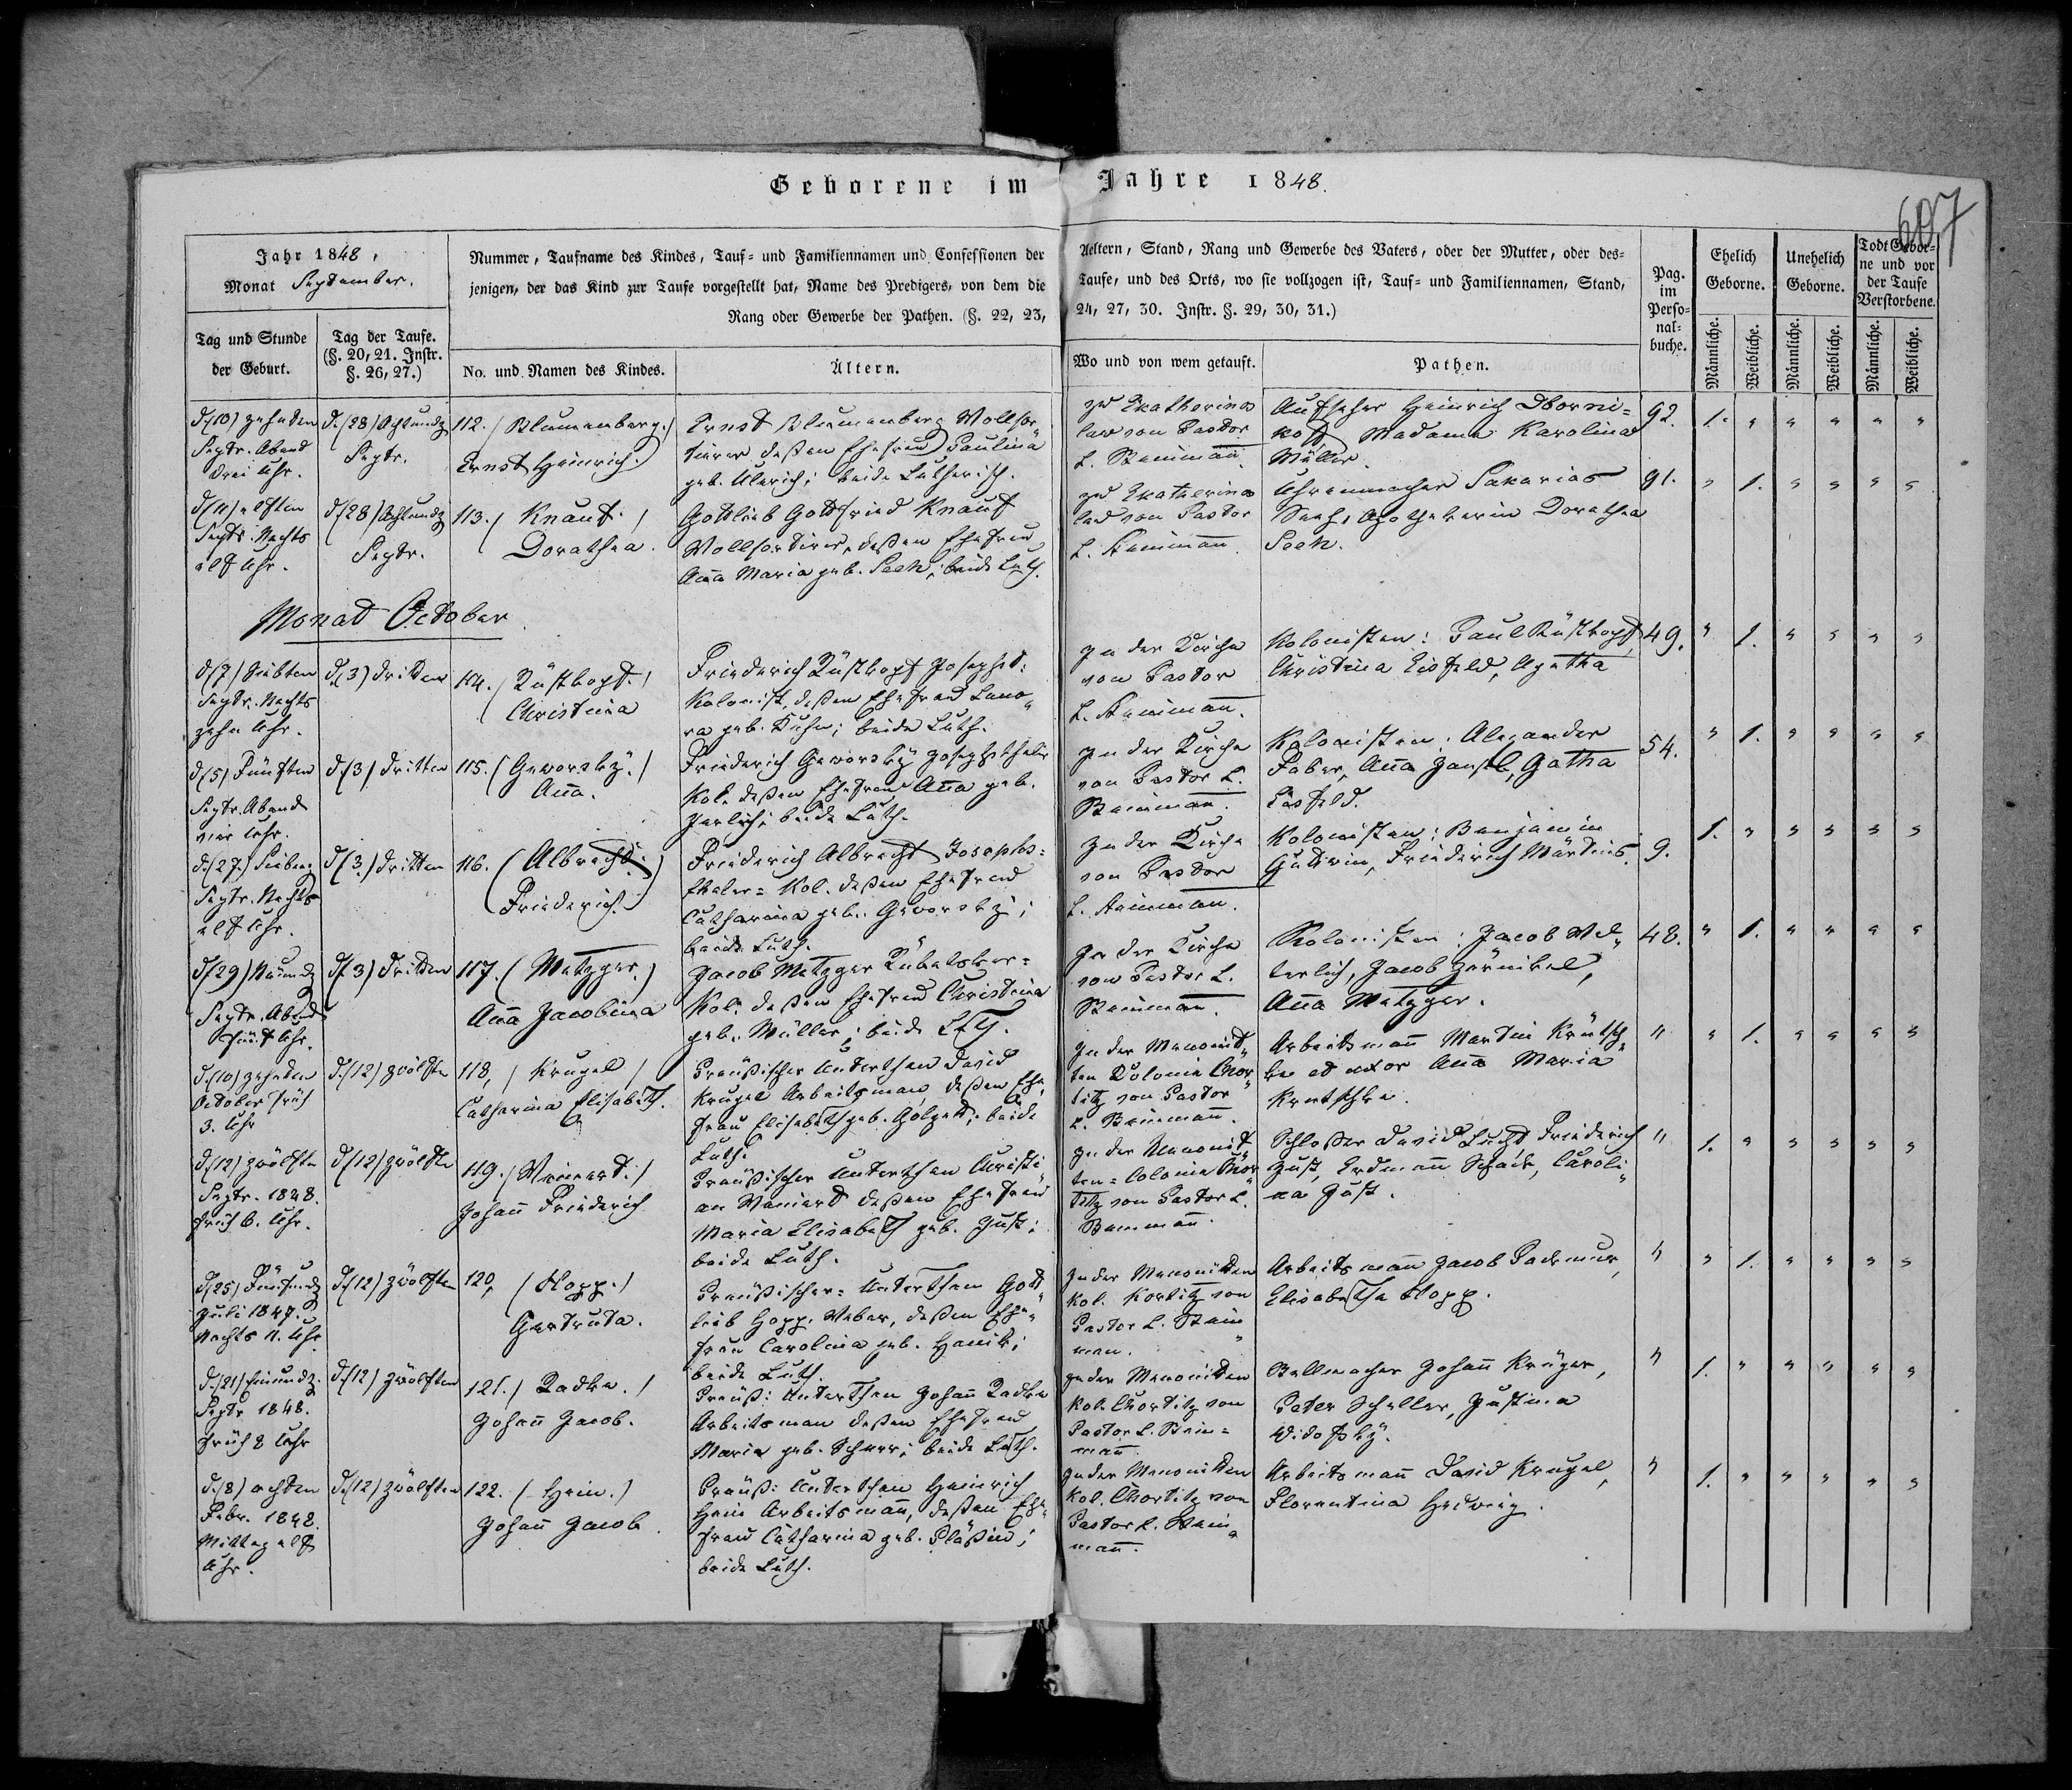 Geborene im Jahre 1848.
607
Jahr 1848,
Monat September.
Nummer, Taufname des Kindes, Tauf- und Familiennamen und Confessionen der
jenigen, der das Kind zur Taufe vorgestellt hat, Name des Predigers, von dem die
Rang oder Gewerbe der Pathen. (§. 22, 23,
Aeltern, Stand, Rang und Gewerbe des Vaters, oder der Mutter, oder des-
Taufe, und des Orts, wo sie vollzogen ist, Tauf- und Familiennamen, Stand,
24, 27, 30. Instr. §. 29, 30, 31.)
Pag.
im
Perso-
nal-
buche.
Ehelich
Geborne.
Unehelich
Geborne.
Todt Gebor-
ne und vor
der Taufe
Verstorbene.
Tag und Stunde
der Geburt.
Tag der Taufe.
(§. 20, 21. Instr.
§. 26, 27.)
No. und Namen des Kindes.
Ältern.
Wo und von wem getauft.
Pathen.
Männliche.
Weibliche.
Männliche.
Weibliche.
Männliche.
Weibliche.
d. (10) zehnten
Septr. Abend
drei Uhr.
d. (28) Achtundz
Septr.
112. (Blumenberg.)
Ernst Heinrich.
Ernst Blumenberg Wollsor„
tirer deßen Ehefrau Paulina
geb. Ulerich; beide Lutherisch.
zu Ekatherinos
law von Pastor
L. Steinmañ.
Aufseher Heinrich
Madame Karolina
Müller.
92.
1. " " " " "
d (11) elften
Septr. Nachts
elf Uhr.
d (28) Achtundz
Septr.
113. (Knauf.)
Dorathea.
Gottlieb Gottfried Knauf
Wollsortirer, deßen Ehefrau
Aña Maria geb. Seek; beide Luth.
zu Ekatherinos
law von Pastor
L. Steinmañ.
Uhrenmacher Sakarias
Seek, Apothekerin Dorathea
Seek.
91.
" 1. " " " "
Monat October.
d (7) Siebten
Septr. Nachts
zehn Uhr.
d. (3) dritten
114. (Rüstkopf.)
Christina
Friederich Rüstkopf Josephst:
Kolonist, deßen Ehefrau Leno„
ra geb. Kuhn; beide Luth.
In der Kirche
von Pastor
L. Steinmañ.
Kolonisten: Paul Rüstkopf,
Christina Eisfeld, Agatha
49.
" 1. " " " "
d (5) Fünften
Septr. Abends
vier Uhr.
d. (3) dritten
115. (Geworsky.)
Aña.
Friederich Geworsky Josephsthaler
Kol. deßen Ehefrau Aña geb.
beide Luth.
In der Kirche
von Pastor L.
Steinmañ.
Kolonisten: Alexander
Faber, Aña Gatha
Eisfeld.
54.
" 1. " " " "
d. (27) Siebenz
Septr. Nachts
elf Uhr.
d (3.) dritten
116. (Albrecht.)
Friederich.
Friederich Albrecht Josephs=
thaler= Kol. deßen Ehefrau
Catharina geb. Geworsky;
beide Luth.
In der Kirche
von Pastor
L. Steinmañ.
Kolonisten: Benjamin
Gudwin, Friederich Märtins.
9.
1. " " " " "
d (29) Neunundz
Septr. Abends
fünf Uhr.
d (3) dritten
117. (Metzger.)
Aña Jacobina
Jacob Metzger Rübelsber=
Kol. deßen Ehefrau Christina
geb. Müller; beide Luth.
In der Kirche
von Pastor L.
Steinmañ.
Kolonisten: Jacob Wel„
terlich, Jacob Zernikel,
Aña Metzger.
48.
" 1. " " " "
d. (10) zehnten
October früh
3. Uhr
d. (12) zwölften
118. (Krugel)
Catharina Elisabeth.
Preußischer Unterthan David
Krugel Arbeitsman, deßen Ehe„
frau Elisabeth geb. ; beide
Luth.
In der Menonit„
ten Kolonie Chor
titz von Pastor
L. Steinmañ.
Arbeitsmañ Martin Krutsch„
ke et uxor Aña Maria
Krutschke.
"
" 1. " " " "
d. (12) zwölften
Septr. 1848.
früh 6. Uhr.
d (12) zwölften
119. (Weinert.)
Johañ Friederich
Preußischer Unterthan Christi„
an Weinert deßen Ehefrau
Maria Elisabeth geb. Just;
beide Luth.
In der Menonit„
ten= Colonie Chor
titz von Pastor L.
Steinmañ.
Schloßer David Lucht, Friederich
Just, Erdmañ , Caroli„
na Just.
"
1. " " " " "
d (25) Fünfundz
Juli 1847.
Nachts 11. Uhr
d (12) zwölften
120. (Hopp.)
Gertruta.
Preußischer= Unterthan Gott„
lieb Hopp. Weber, deßen Ehe„
frau Carolina geb. Hanik;
beide Luth.
In der Menoniten
Kol. Kortitz von
Pastor L. Stein„
man.
Arbeitsmañ Jacob
Elisabetha Hopp.
"
" 1. " " " "
d. (21) Einundz.
Septr 1848.
früh 8 Uhr
d. (12) zwölften
121. (Radke.)
Johañ Jacob.
Preuß: Unterthan Johañ Radke
Arbeitsman deßen Ehefrau
Maria geb. Scherr; beide Luth.
In der Menoniten
Kol. Chortitz von
Pastor L. Stein=
mañ.
Stellmacher Johañ Krüger,
Peter Scheller, Justina
"
1. " " " " "
d. (8) achten
Febr. 1848.
Mittag elf
Uhr.
d. (12) zwölften
122. (Hein.)
Johañ Jacob.
Preuß: Unterthan Heinrich
Hein Arbeitsmañ, deßen Ehe„
frau Catharina geb. ;
beide Luth.
In der Menoniten
Kol. Chortitz von
Pastor L. Stein„
mañ.
Arbeitsmañ David Krugel,
Florentina Hedwig.
"
1. " " " " "